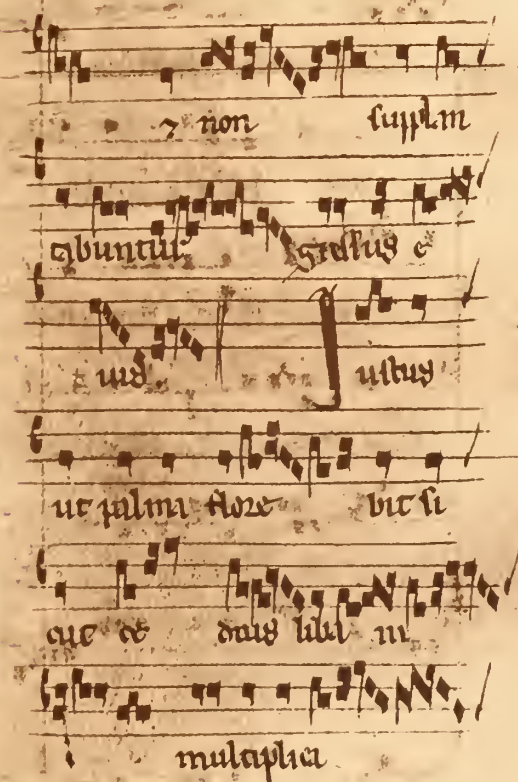 ⁊ non supplan
tabuntur gressus e
ius Iustus
ut palma flore bit si
cut ce drus liba ni
multiplica